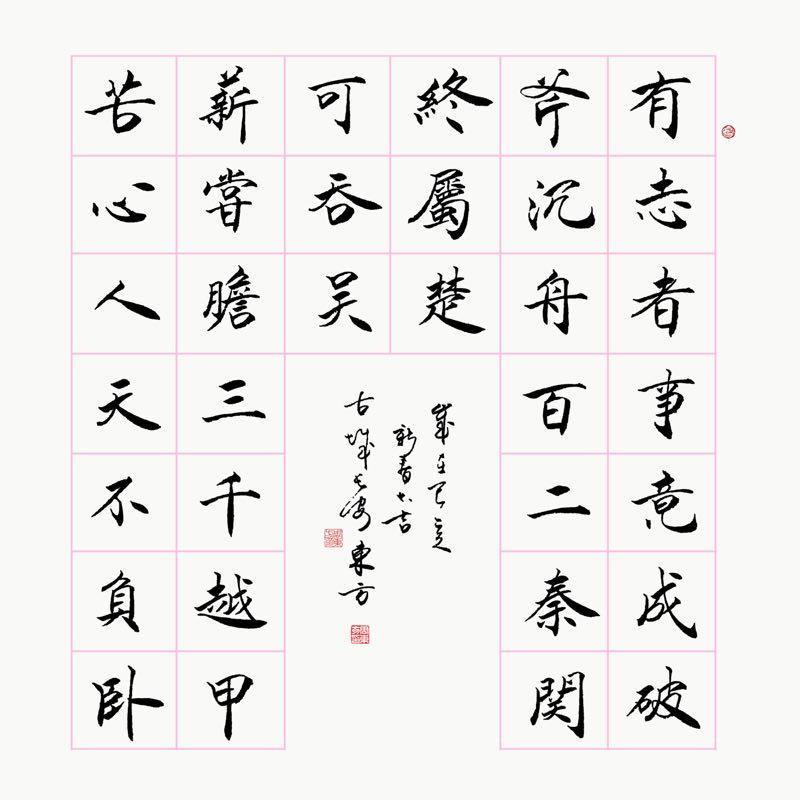 有志者事竟成破
斧沉舟百二秦関
終屬楚
可吞吴
薪嘗膽三千越甲
苦心人天不負卧
歲在己亥
新春大吉
古城長安東方